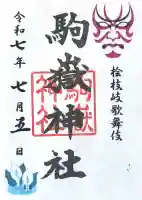 桧枝岐歌舞伎
駒嶽神社
令和七年七月五日